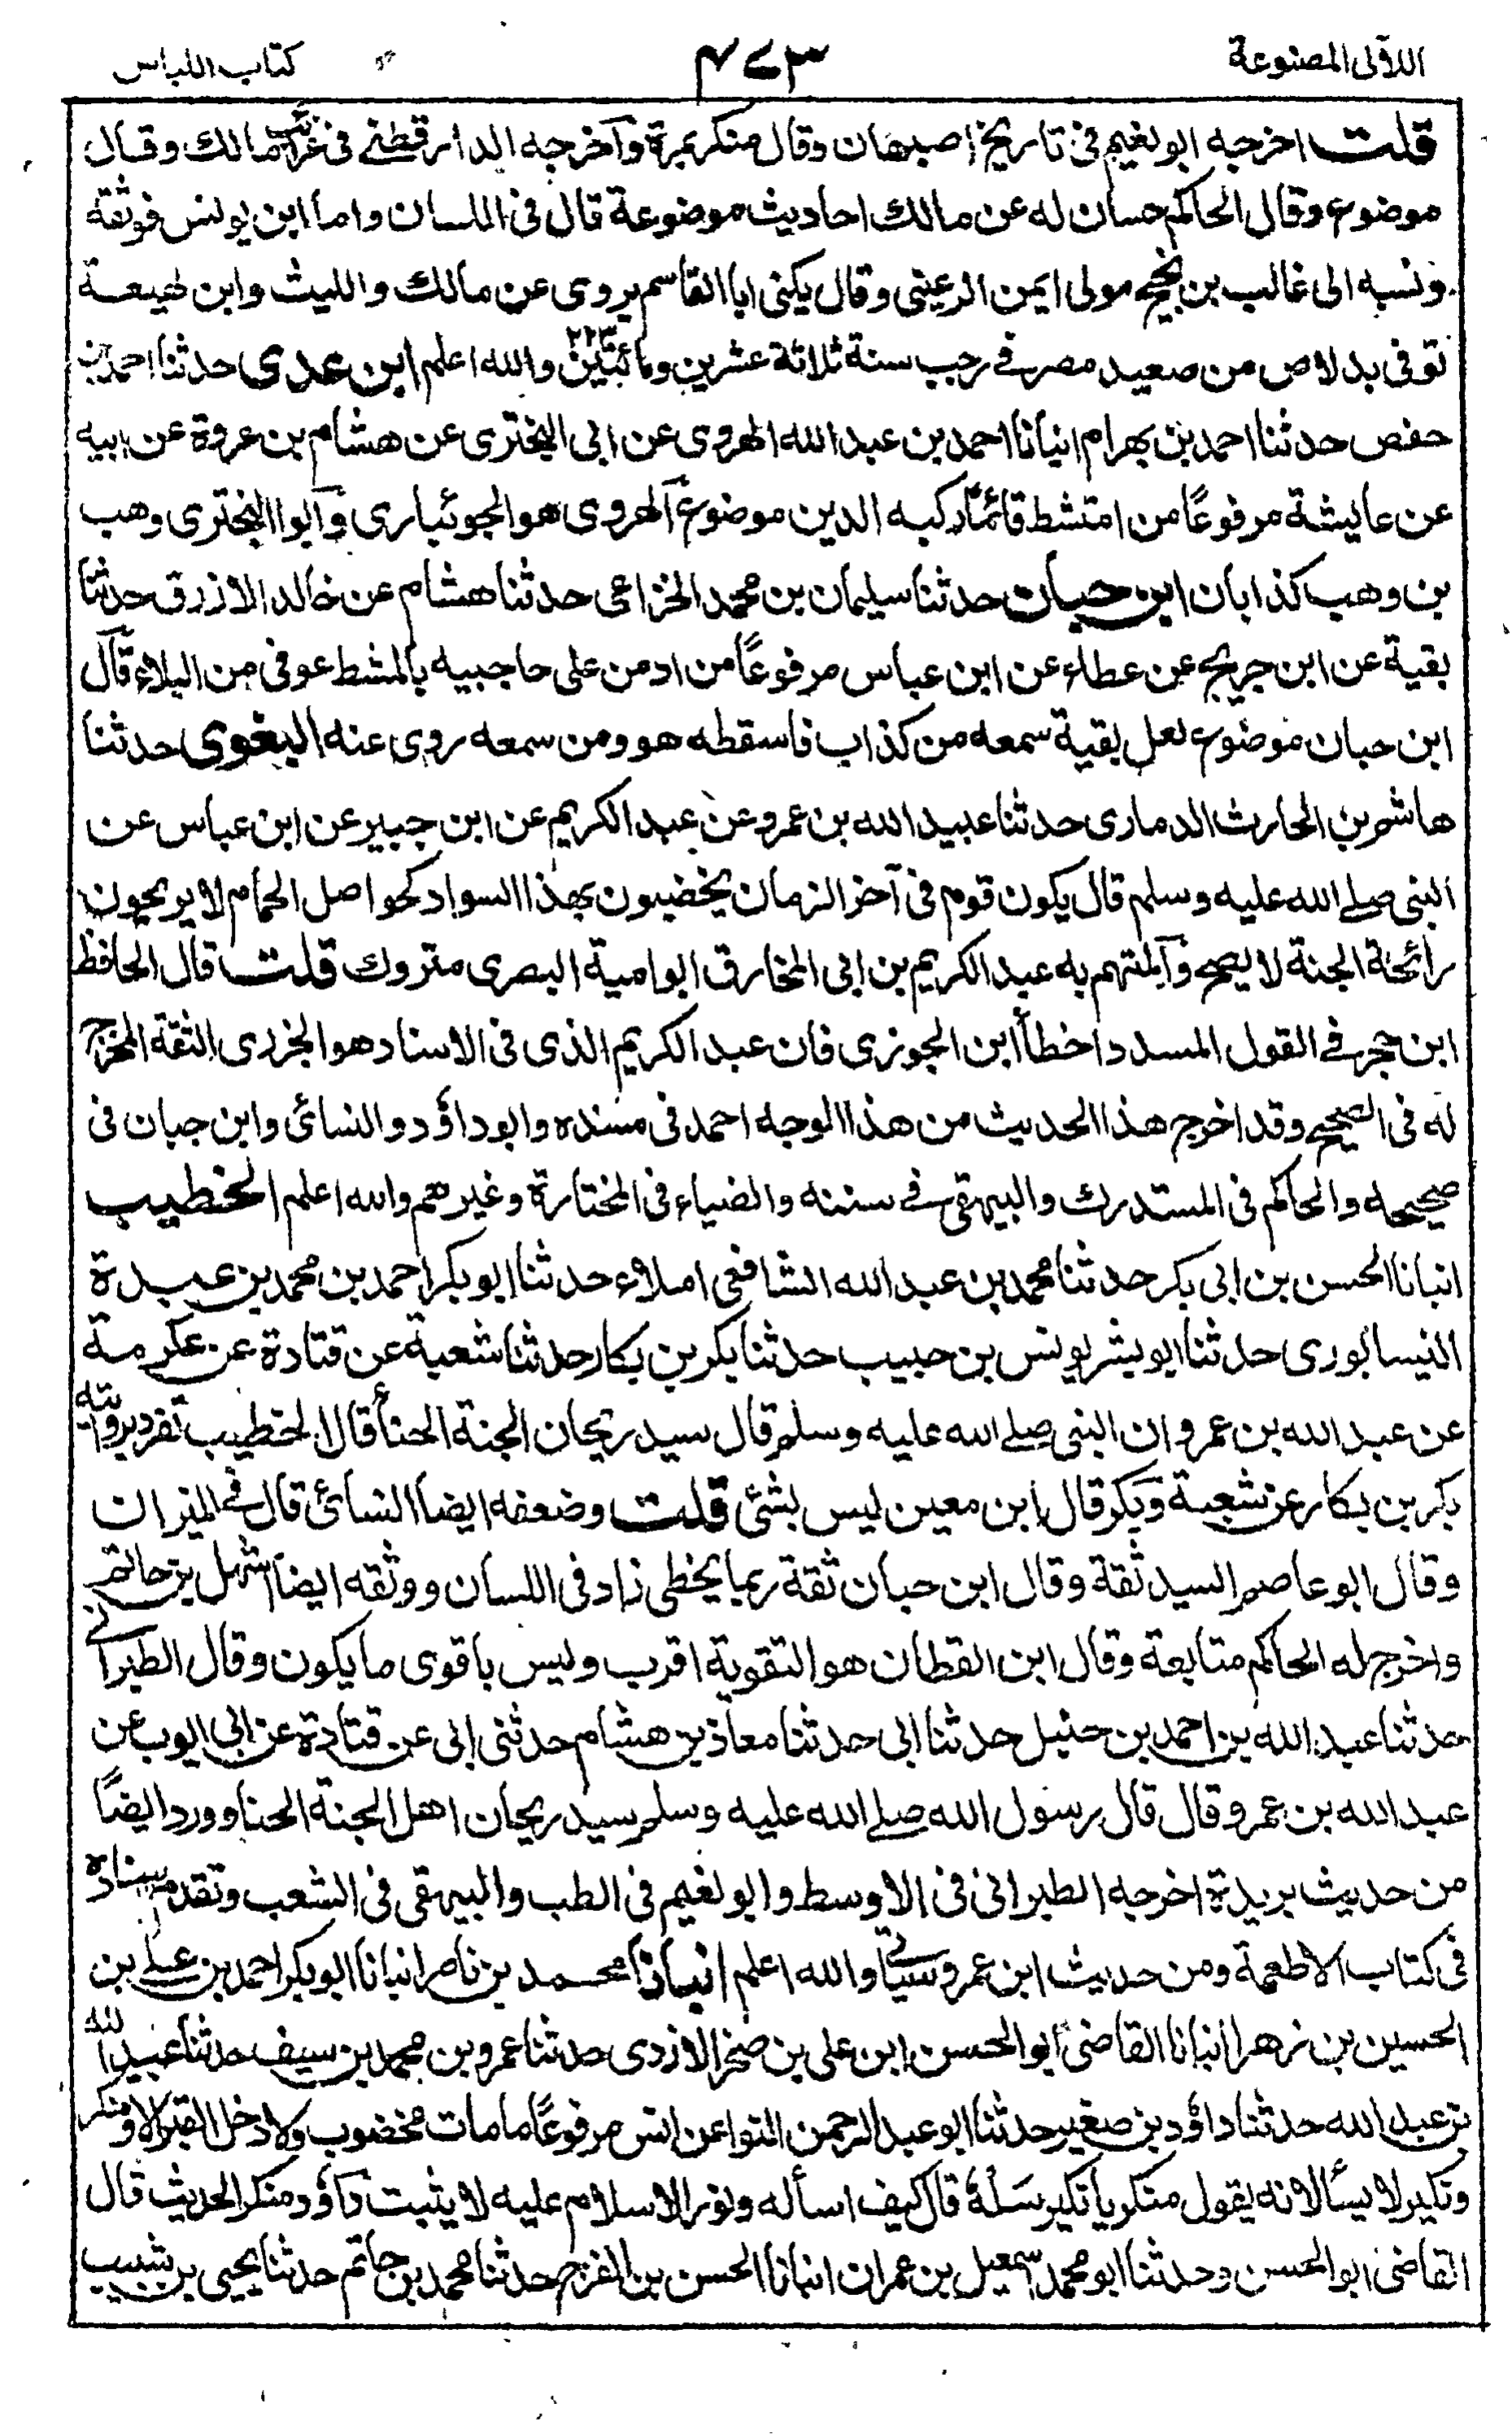 اللآلى المصنوعة ٤٧٣ كتاب اللباس
قلت اخرجه ابو نعيم فى تاريخ اصبهان وقال منكر بمرة وآخرجه الدارقطنے فى غرائب مالك وقال
موضوع وقال الحاكم حسان له عن مالك احاديث موضوعة قال فى اللسان واما ابن يونس فوثقه
ونسبه الى غالب بن نجيح مولى ايمن الرعينى وقال يكنى ابا القاسم يروى عن مالك والليث وابن لهيعة
توفى بدلاص من صعيد مصر فے رجب سنة ثلاثة عشرين ومائتين ٢٢٣ والله اعلم ابن عدى حدثنا احمد بن
حفص حدثنا احمد بن بهرام انبأنا احمد بن عبد الله الهروى عن ابى البخترى عن هشام بن عروة عن ابيه
عن عايشة مرفوعًا من امتشط قائمًا ركبه الدين موضوع الهروى هو الجوئبارى وآبو البخترى وهب
بن وهب كذابان ابن حبان حدثنا سليمان بن محمد الخزاعى حدثنا هشام عن خالد الازرق حدثنا
بقية عن ابن جريج عن عطاء عن ابن عباس مرفوعًا من ادمن على حاجبيه بالمشط عوفى من البلاء قال
ابن حبان موضوع لعل بقية سمعه من كذاب فاسقطه هو ومن سمعه روى عنه البغوى حدثنا
هاشم بن الحارث الدمارى حدثنا عبيد الله بن عمرو عن عبد الكريم عن ابن جبير عن ابن عباس عن
النبى صلے الله عليه وسلم قال يكون قوم فى آخر الزمان يخضبون بهذا السواد كحواصل الحمام لا يريحون
رائحة الجنة لا يصح وآلمتهم به عبد الكريم بن ابى المخارق ابو امية البصرى متروك قلت قال الحافظ
ابن حجر فے القول المسدد اخطأ ابن الجوزى فان عبد الكريم الذى فى الاسناد هو الجزرى الثقة المخرج
له فى الصحيح وقد اخرج هذا الحديث من هذا الوجه احمد فى مسنده وابو داؤد والنسائى وابن حبان فى
صحيحه والحاكم فى المستدرك والبيهقى فے سننه والضياء فى المختارة وغيرهم والله اعلم الخطيب
انبانا الحسن بن ابى بكر حدثنا محمد بن عبد الله الشافعى املاء حدثنا ابو بكر احمد بن محمد بن عبدة
النيسابورى حدثنا ابو بشر يونس بن حبيب حدثنا بكر بن بكار حدثنا شعبة عن قتادة عن عكرمة
عن عبد الله بن عمرو ان النبى صلے الله عليه وسلم قال سيد ريحان الجنة الحنأ قال الخطيب تفرد بروايته
بكر بن بكار عن شعبة وبكر قال ابن معين ليس بشئى قلت وضعفه ايضا النسائى قال فے الميزان
وقال ابو عاصم السيد ثقة وقال ابن حبان ثقة ربما يخطى زاد فى اللسان ووثقه ايضا اشهل بن حاتم
واخرج له الحاكم متابعة وقال ابن القطان هو التقوية اقرب وليس باقوى ما يكون وقال الطبرانے
حدثنا عبد الله بن احمد بن حنبل حدثنا ابى حدثنا معاذ بن هشام حدثنى ابى عن قتادة عن ابى ايوب عن
عبد الله بن عمرو قال قال رسول الله صلے الله عليه وسلم سيد ريحان اهل الجنة الحنا وورد ايضًا
من حديث بريدة اخرجه الطبرانى فى الاوسط وابو نعيم فى الطب والبيهقى فى الشعب وتقدم اسناده
فى كتاب الاطعمة ومن حديث ابن عمر وسياتى والله اعلم انبانا محمد بن ناصر انبانا ابو بكر احمد بن علے بن
الحسين بن زهرا انبانا القاضى ابو الحسن ابن على بن صخر الازدى حدثنا عمرو بن محمد بن سيف حدثنا عبيد الله
بن عبد الله حدثنا داؤد بن صغير حدثنا ابو عبد الرحمن النوا عن انس مرفوعًا ما مات مخضوب ولا دخل القبر الا ومنكر
ونكير لا يسألانه يقول منكر يا نكير سَلْهُ قال كيف اسأله ونور الاسلام عليه لا يثبت داؤد منكر الحديث قال
القاضى ابو الحسن وحدثنا ابو محمد اسمعيل بن عمران انبانا الحسن بن الفرج حدثنا محمد بن حاتم حدثنا يحيى بن شبيب